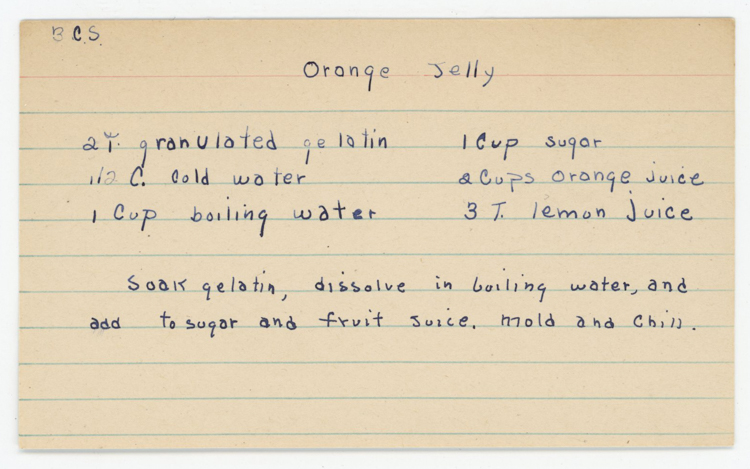 B.C.S.
Orange Jelly
2 T. granulated gelatin 1 Cup sugar
1/2 C. Cold water 2 Cups orange juice
1 Cup boiling water 3 T. lemon juice
Soak gelatin, dissolve in boiling water, and
add to sugar and fruit juice. Mold and Chill.